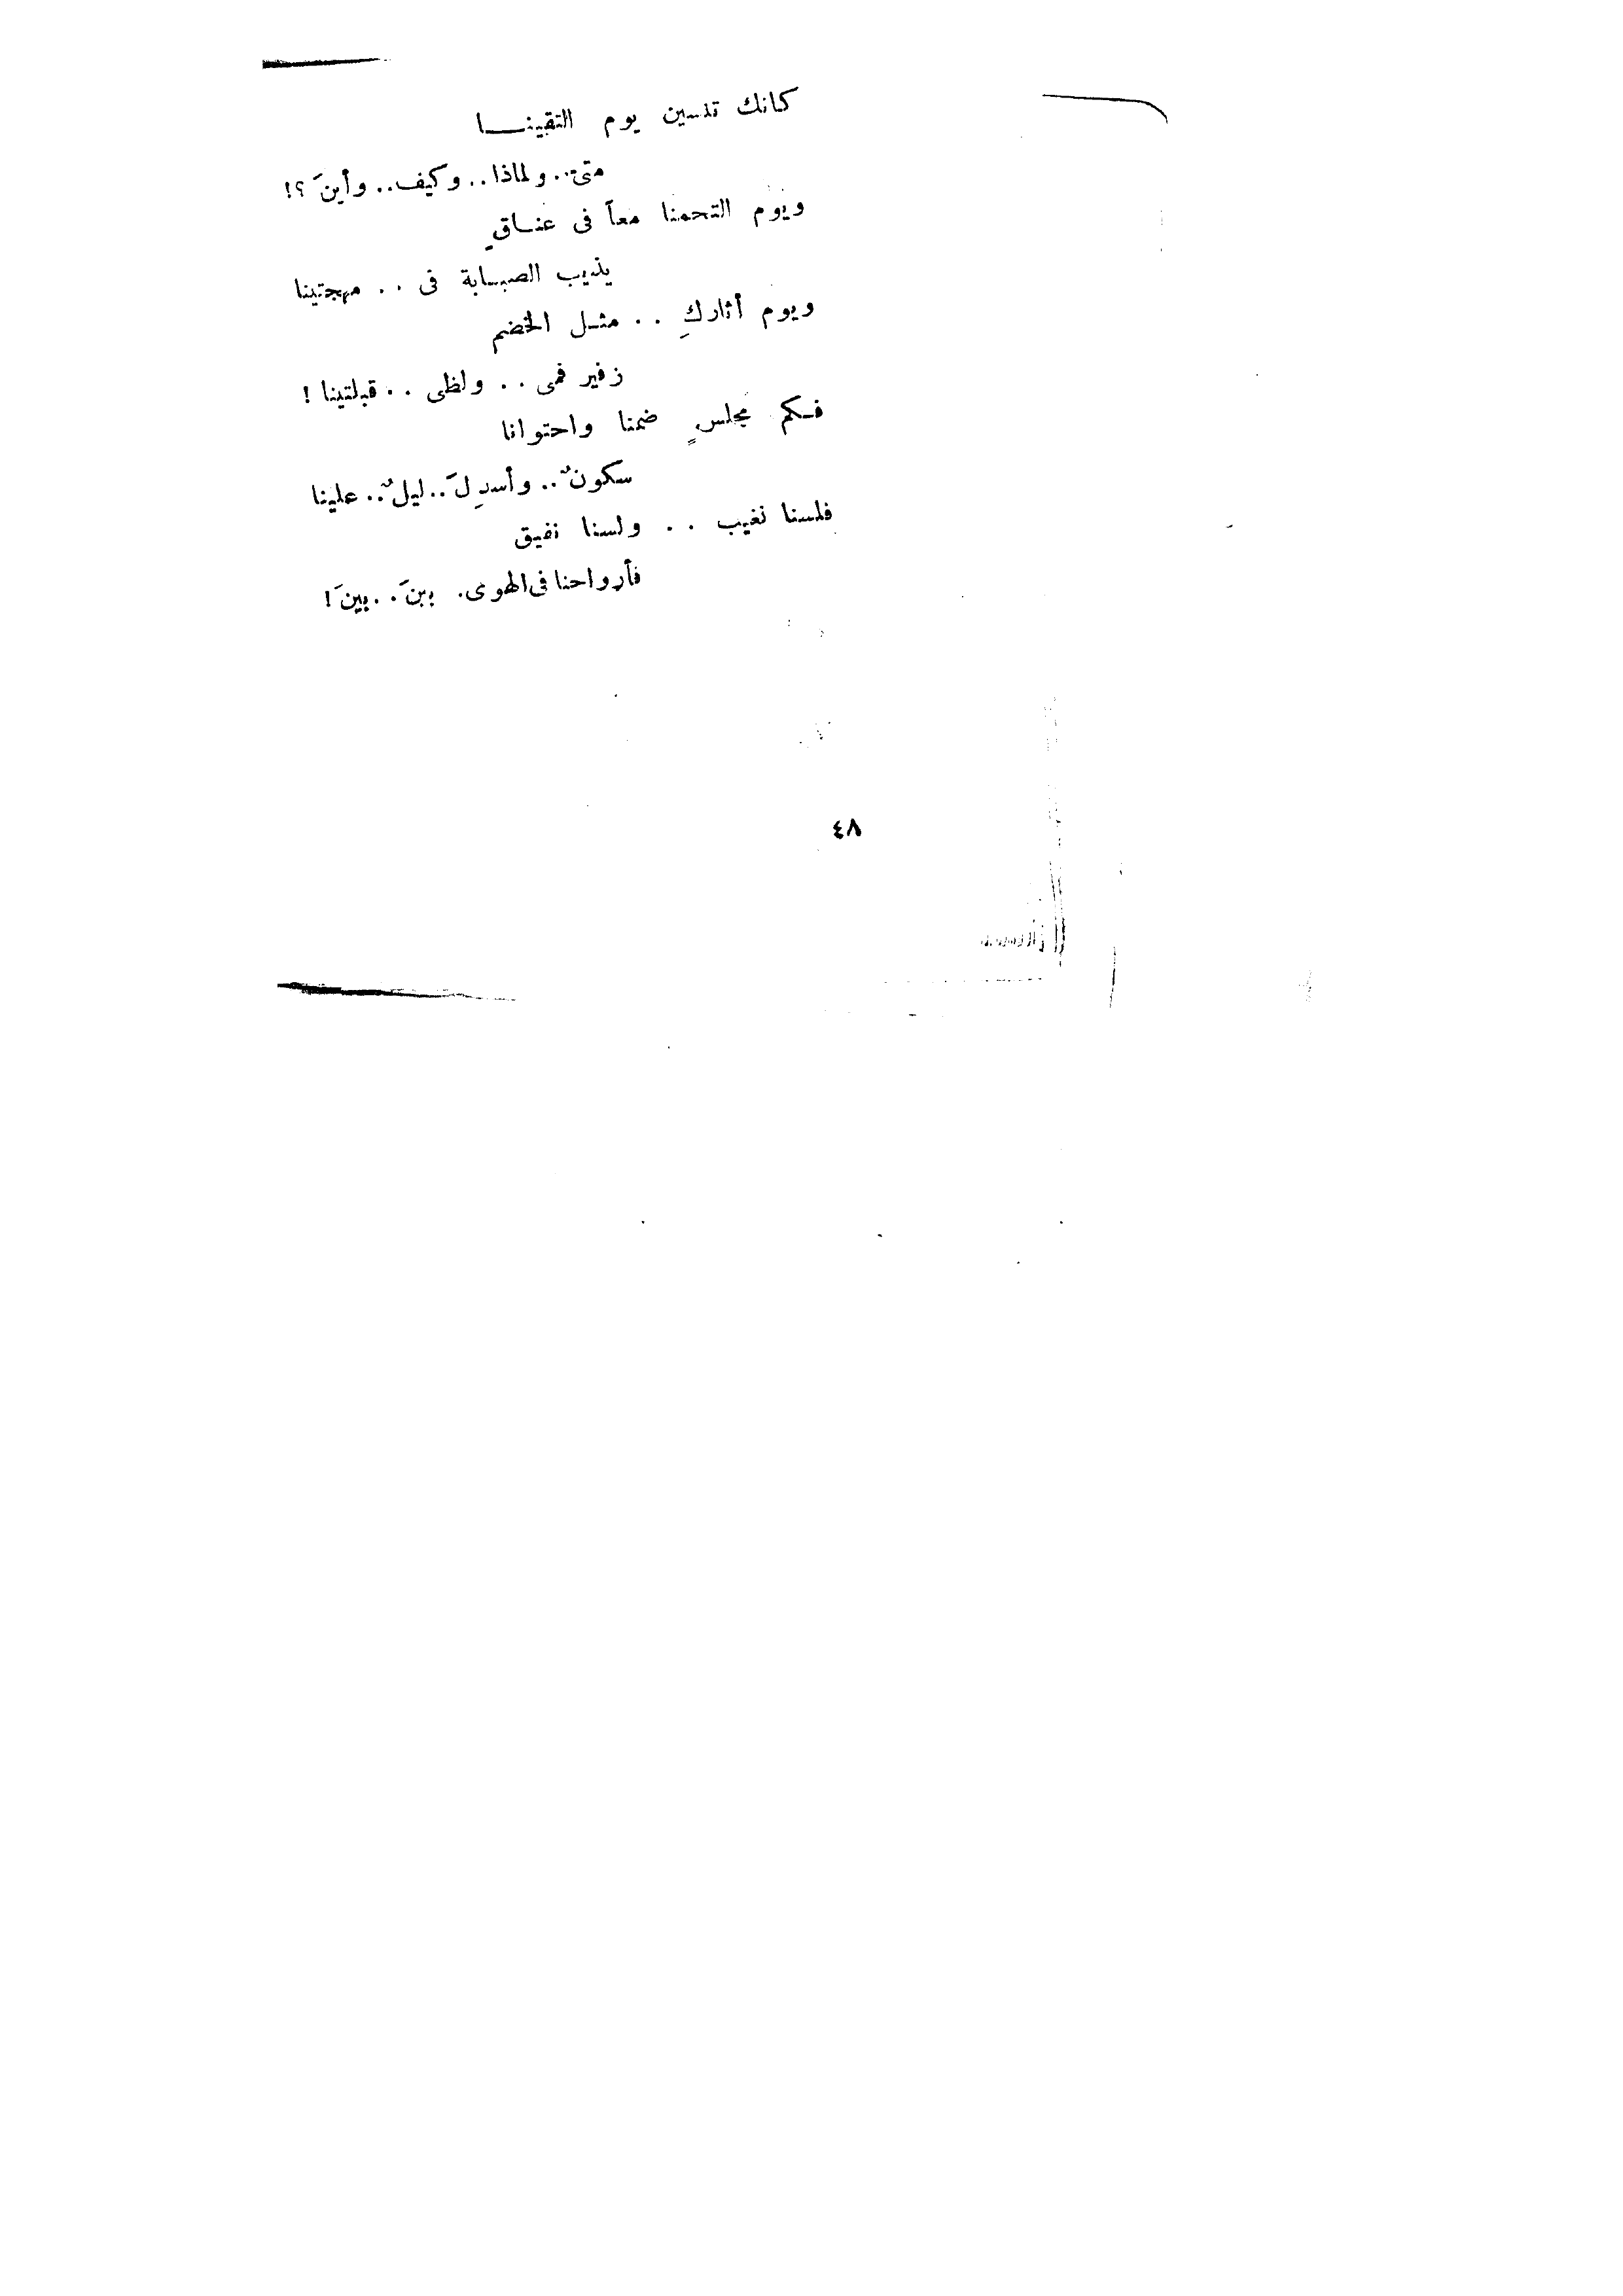 كأنك تنسين يوم التقينــــا
متى.. ولماذا.. وكيف.. وأينَ ؟!
ويوم التحمنا معاً فى عنــاقٍ
يذيب الصبــابة فى .. مهجتينا
ويوم أثاركِ .. مثــل الخضم
زفير فمى .. ولظى .. قبلتينا !
فــكم مجلسٍ ضمنا واحتوانا
سكونٌ.. وأسدِلَ.. ليلٌ.. علينا
فلسنا نغيب .. ولسنا نفيق
فأرواحنا فى الهوى. بينَ.. بينَ !
٤٨